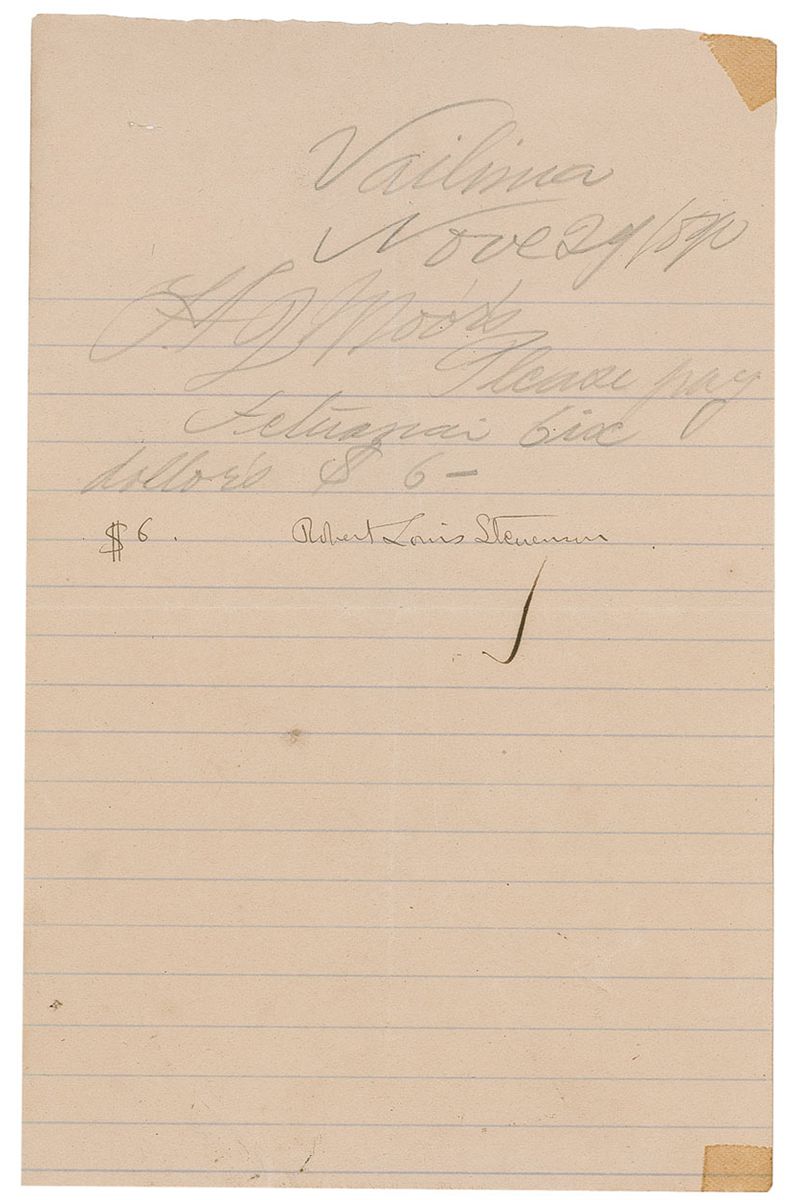 Vailima
Nove 29/890
H J Moors
Please pay
six
dollors $ 6 –
$ 6 . Robert Louis Stevenson